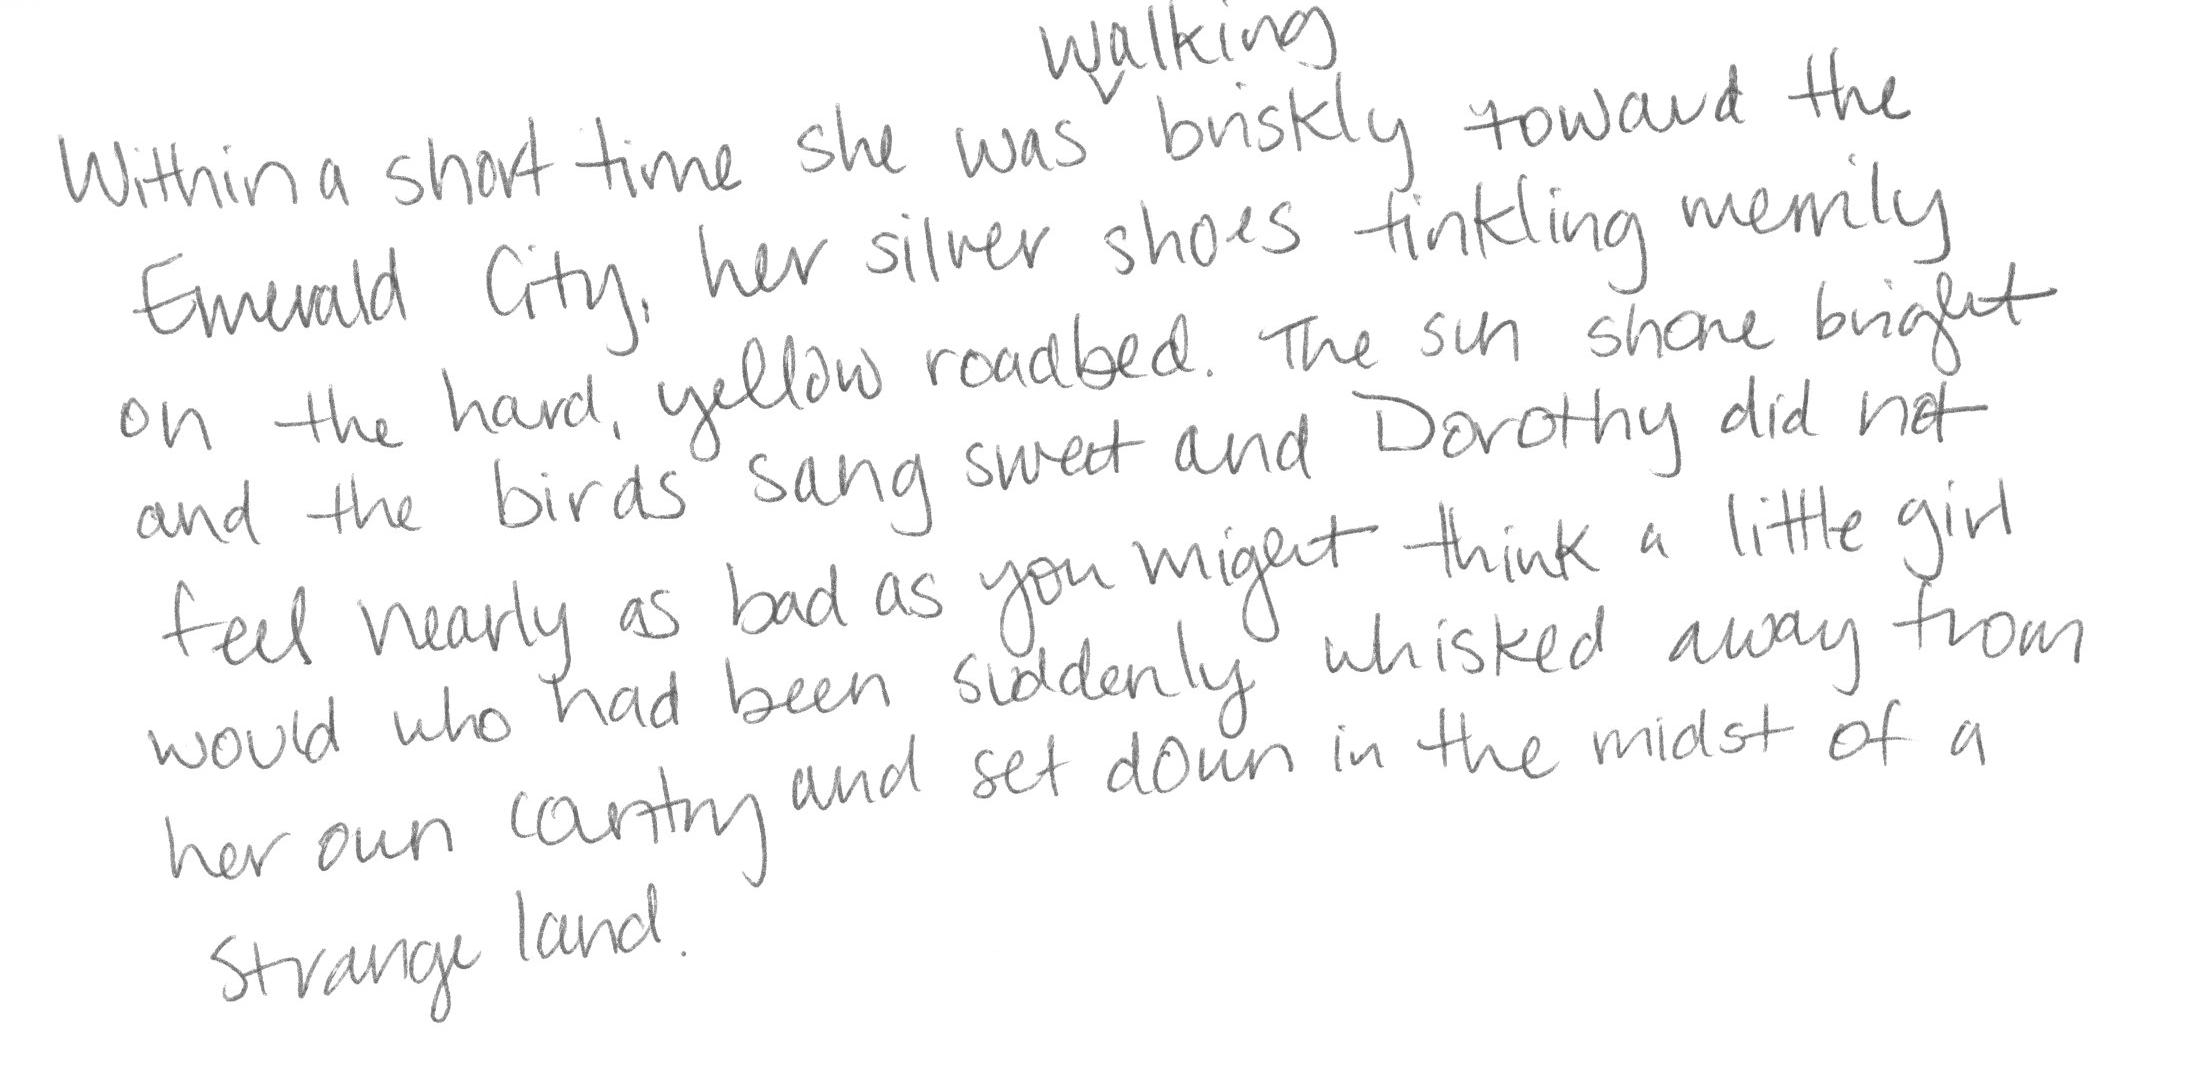 Within a short time she was walking briskly toward the
Emerald City, her silver shoes tinkling merrily
on the hard, yellow roadbed. The sun shone bright
and the birds sang sweet and Dorothy did not
feel nearly as bad as you might think a little girl
would who had been suddenly whisked away from
her own country and set down in the midst of a
strange land.